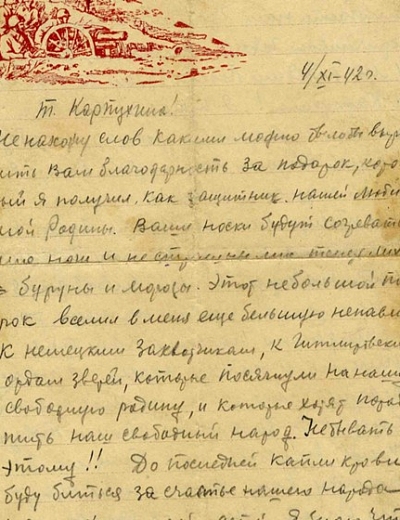 4/XI-42 г.
т. Карпухина!
Не нахожу слов какими можно было бы выра
зить Вам благодарность за подарок, кото
рый я получил, как защитник нашей люби
мой Родины. Ваши носки будут согревать
мои ноги и не страшны мне теперь
буруны и морозы. Этот небольшой по
рок вселил в меня еще большую ненави
К немецким захватчикам, к Гитлеровски
ордам зверей, которые посягнули на нашу
свободную родину, и которые хотят пораб
тить наш свободный народ. Не бывать
этому!! До последней капли крови
буду биться за счастье нашего народа